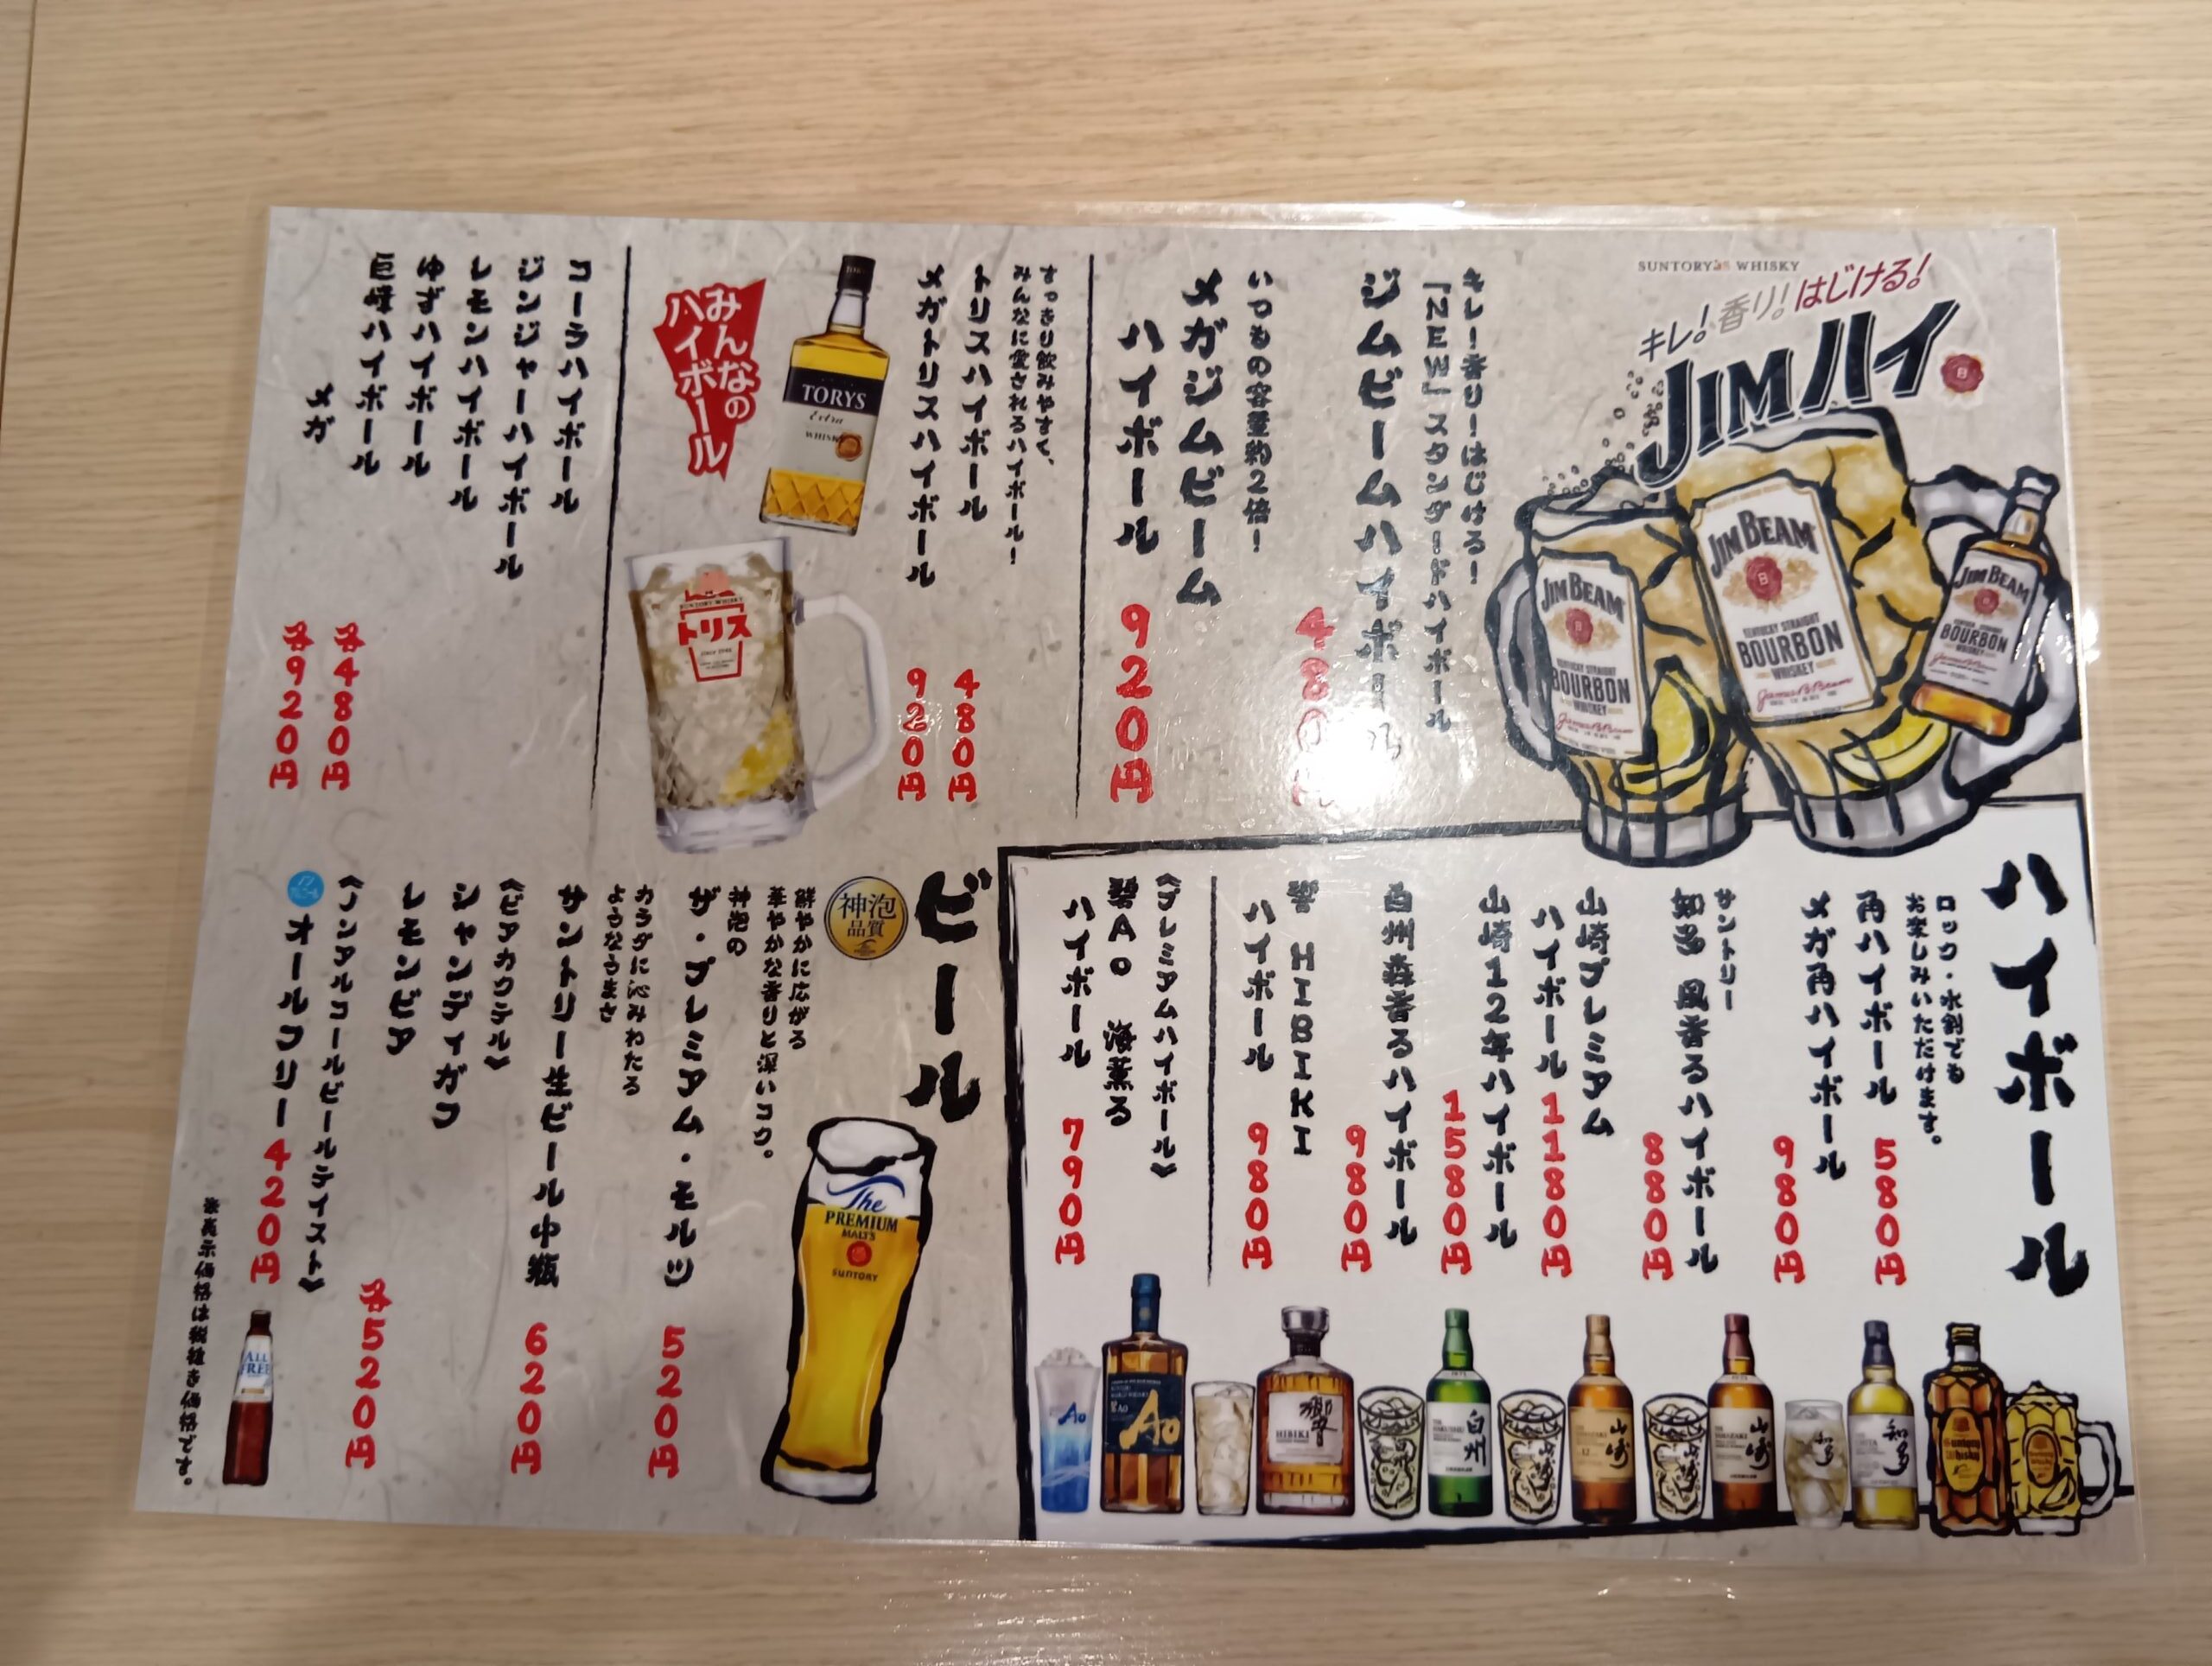 SUNTORY WHISKY
キレ!香り!はじける!
JIMハイ
JIM BEAM
KENTUCKY STRAIGHT
BOURBON
WHISKEY
JIM BEAM
KENTUCKY STRAIGHT
BOURBON
WHISKEY
JIM BEAM
BOURBON
WHISKEY
キレ!香り!はじける!
「NEW」スタンダードハイボール
ジムビームハイボール
480円
いつもの容量約2倍!
メガジムビーム
ハイボール
920円
すっきり飲みやすく、
みんなに愛されるハイボール!
トリスハイボール 480円
メガトリスハイボール 920円
みんなの
ハイボール
TORYS
Extra
WHISKY
トリス
コーラハイボール
ジンジャーハイボール
レモンハイボール
ゆずハイボール
巨峰ハイボール
各480円
メガ
各920円
ハイボール
ロック・水割でも
お楽しみいただけます。
角ハイボール 580円
メガ角ハイボール
980円
サントリー
知多 風香るハイボール
880円
山崎プレミアム
ハイボール 1180円
山崎12年ハイボール
1580円
白州森香るハイボール
980円
響 HIBIKI
ハイボール 980円
《プレミアムハイボール》
碧Ao 海薫る
ハイボール 790円
Ao
Ao
響
HIBIKI
白州
山崎
山崎
知多
知多
ビール
神泡
品質
鮮やかに広がる
華やかな香りと深いコク。
神泡の
ザ・プレミアム・モルツ
520円
The
PREMIUM
MALT'S
SUNTORY
カラダに沁みわたる
ようなうまさ
サントリー生ビール中瓶
620円
《ビアカクテル》
シャンディガフ
レモンビア
各520円
《ノンアルコールビールテイスト》
オールフリー 420円
ALL
FREE
※表示価格は税抜き価格です。